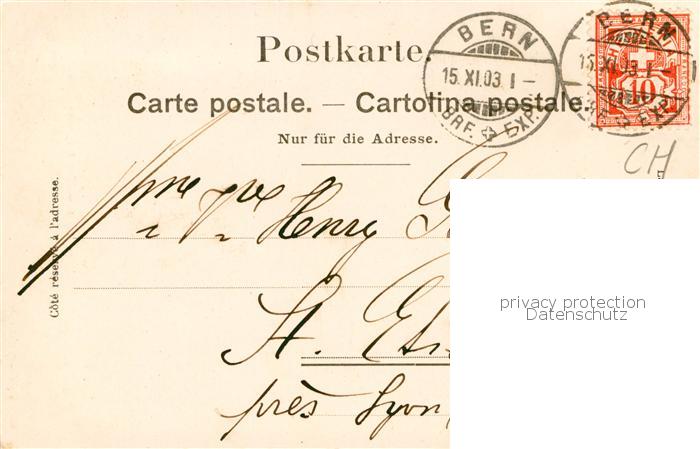 Postkarte.
BERN
15.XI.03. I -
BRF. EXP.
BERN
15.XI.03. I -
10
Carte postale. — Cartolina postale.
Nur für die Adresse.
CH
Côté réservé à l'adresse.
Henry
St.
près Lyon
privacy protection
Datenschutz